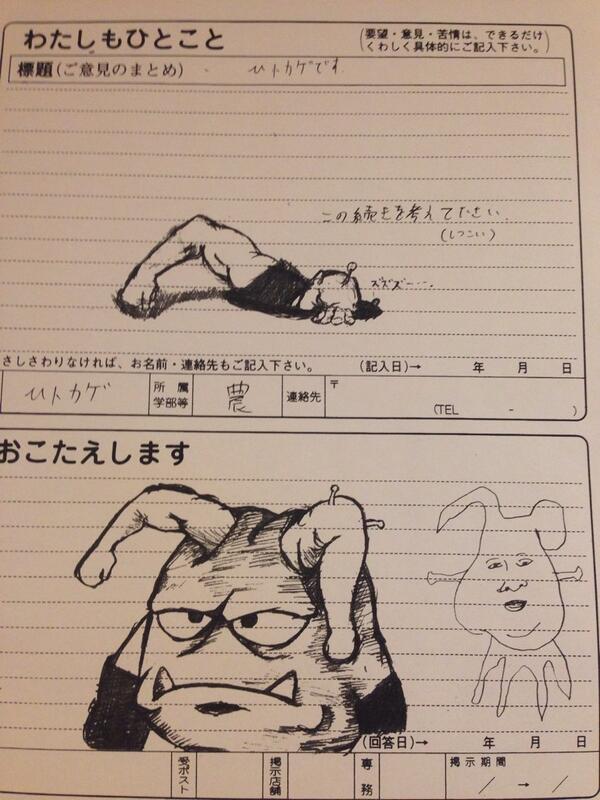 わたしもひとこと
(要望・意見・苦情は、できるだけ
くわしく具体的にご記入下さい。)
標題(ご意見のまとめ) ヒトカゲです
この続きを考えて下さい。
(しつこい)
ズズズー・・・
さしさわりなければ、お名前・連絡先もご記入下さい。 (記入日)→ 年 月 日
ヒトカゲ 所属学部等 農 連絡先 〒
(TEL - )
おこたえします
(回答日)→ 年 月 日
受ポスト 掲示店舗 専務 掲示期間
/ → /